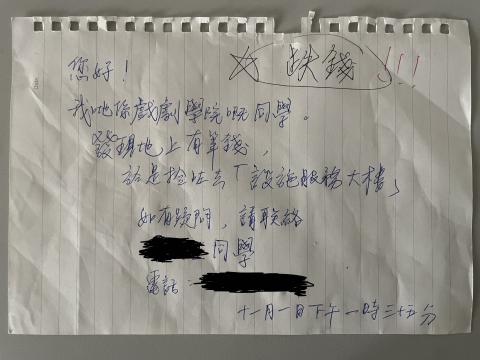 您好!
跌錢!!!
我哋係戲劇學院嘅同學。
發現地上有筆錢,
於是拎咗去「設施服務大樓」
如有疑問,請联絡
同學
電話
十一月一日下午一時三十五分